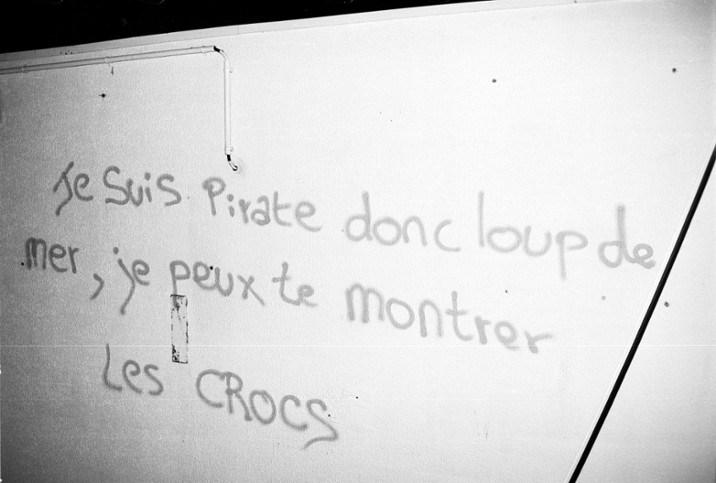 Je Suis Pirate donc loup de
mer, je peux te montrer
Les CROCS